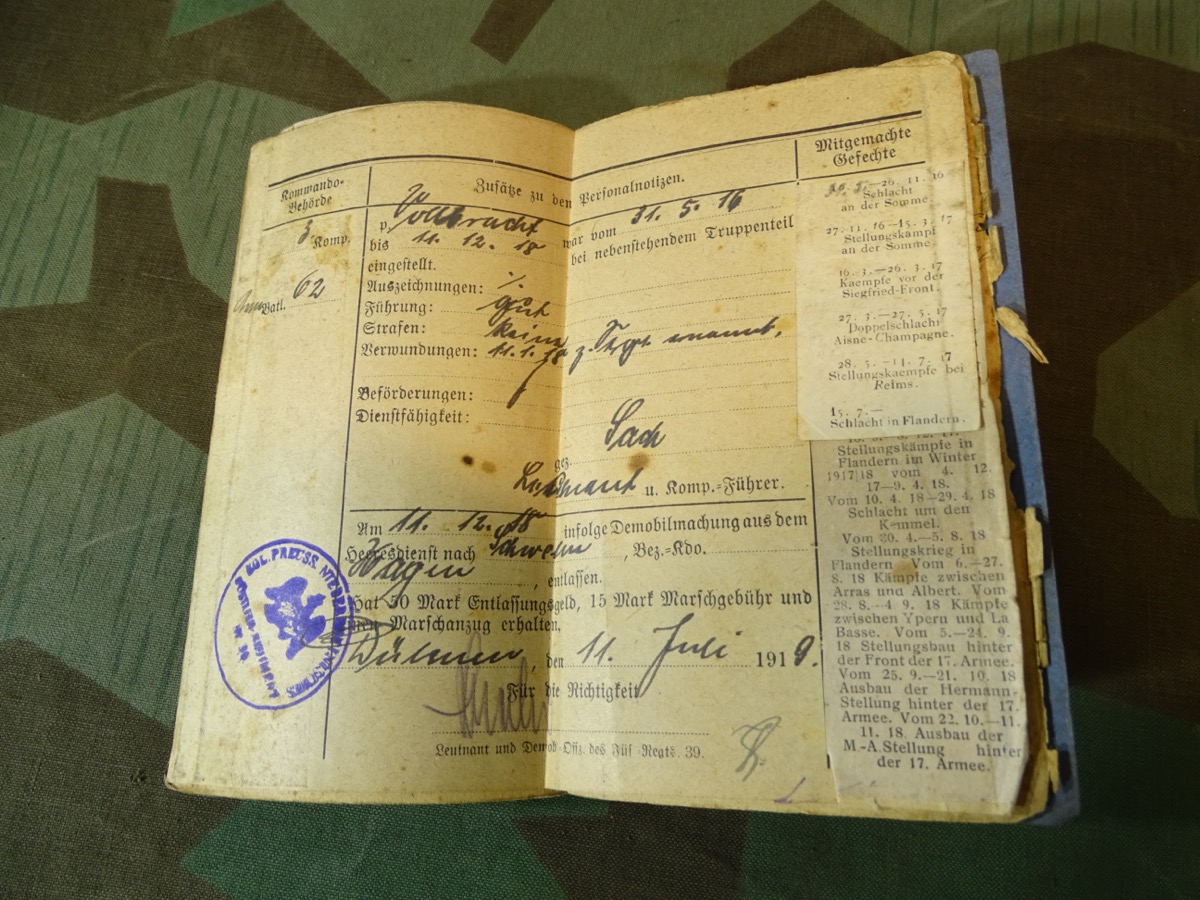 Kommando-
Behörde
Zusätze zu den Personalnotizen.
Mitgemachte
Gefechte
3 Komp.
Batl. 62
p. Vollbracht war vom 31. 5. 16
bis 11. 12. 18 bei nebenstehendem Truppenteil
eingestellt.
Auszeichnungen: ∕.
Führung: gut
Strafen: keine
Verwundungen: 11.1.18 z. Sergt. ernannt.
Beförderungen:
Dienstfähigkeit:
gez. Sach
Leutnant u. Komp.-Führer.
Am 11. 12. 18 infolge Demobilmachung aus dem
Heeresdienst nach Schwelm, Bez.-Kdo.
Hagen, entlassen.
Hat 50 Mark Entlassungsgeld, 15 Mark Marschgebühr und
Marschanzug erhalten.
Dülmen, den 11. Juli 1919.
Für die Richtigkeit
Leutnant und Demob.-Offz. des Füs.-Regts. 39.
KGL. PREUSS. NIEDERRHEINISCHES
FÜSILIER-REGIMENT
Nr. 39.
26. 11. 16
Schlacht
an der Somme.
27. 11. 16—15. 3. 17
Stellungskampf
an der Somme.
16. 3.—26. 3. 17
Kaempfe vor der
Siegfried-Front.
27. 3.—27. 5. 17
Doppelschlacht
Aisne-Champagne.
28. 5.—14. 7. 17
Stellungskaempfe bei
Reims.
15. 7.—
Schlacht in Flandern.
Stellungskämpfe in
Flandern im Winter
1917|18 vom 4. 12.
17—9. 4. 18.
Vom 10. 4. 18—29. 4. 18
Schlacht um den
Kemmel.
Vom 30. 4.—5. 8. 18
Stellungskrieg in
Flandern Vom 6.—27.
8. 18 Kämpfe zwischen
Arras und Albert. Vom
28. 8.—4 9. 18 Kämpfe
zwischen Ypern und La
Basse. Vom 5.—24. 9.
18 Stellungsbau hinter
der Front der 17. Armee.
Vom 25. 9.—21. 10. 18
Ausbau der Hermann-
Stellung hinter der 17.
Armee. Vom 22. 10.—11.
11. 18. Ausbau der
M-A.Stellung hinter
der 17. Armee.